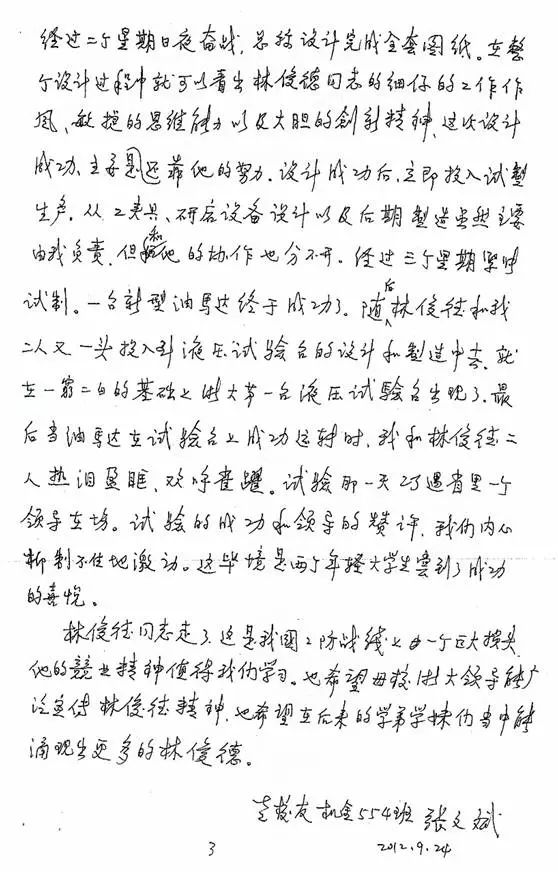 经过二个星期日夜奋战，总算设计完成全套图纸。在整
个设计过程中就可以看出林俊德同志的细仔的工作作
风、敏捷的思维能力以及大胆的创新精神，这次设计
成功，主要是还靠他的努力。设计成功后，立即投入试製
生产。从工夹具、研磨设备设计以及后期製造虽然主要
由我负责，但和他的协作也分不开。经过三个星期紧张
试制。一台新型油馬达终于成功了。随后林俊德和我
二人又一头投入到液压试验台的设计和製造中去，就
在一窮二白的基础上浙大第一台液压试验台出现了。最
后当油馬达在试验台上成功运转时，我和林俊德二
人热泪盈眶，欢呼雀躍。试验那一天巧遇省里一个
领导在场。试验的成功和领导的赞许，我们内心
抑制不住地激动。这毕境是两个年轻大学生尝到了成功
的喜悦。
林俊德同志走了，这是我國国防战线上的一个巨大损失
他的競业精神值得我们学习。也希望母校浙大领导能广
泛宣传林俊德精神，也希望在后来的学弟学妹们当中能
涌现出更多的林俊德。
老校友 机金554班 张文斌
2012.9.24
3